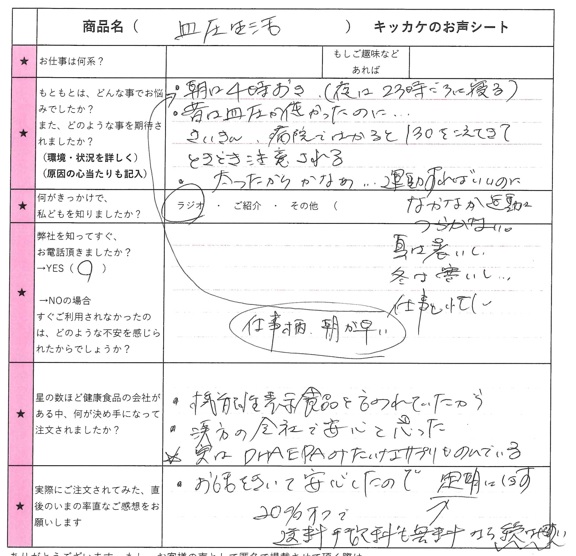 商品名（ 血圧生活 ） キッカケのお声シート
★ お仕事は何系？
もしご趣味など
あれば
★ もともとは、どんな事でお悩
みでしたか？
また、どのような事を期待さ
れましたか？
（環境・状況を詳しく）
（原因の心当たりも記入）
・朝は4時おき、(夜は23時ごろに寝る)
・昔は血圧が低かったのに…
さいきん、病院ではかると130をこえてきて
ときどき注意される
・太ったからかなぁ…運動すればいいのに
なかなか運動に
つづかない。
夏は暑いし、
冬は寒いし…
仕事も忙し
仕事柄、朝が早い
★ 何がきっかけで、
私どもを知りましたか？
ラジオ ・ ご紹介 ・ その他 （
★ 弊社を知ってすぐ、
お電話頂きましたか？
→YES（ ）
→NOの場合
すぐご利用されなかったの
は、どのような不安を感じら
れたからでしょうか？
★ 星の数ほど健康食品の会社が
ある中、何が決め手になって
注文されましたか？
・機能性表示食品と言われていたから
・漢方の会社で安心と思った
☆ 実はDHAEPAみたいなサプリものんでいる
★ 実際にご注文されてみた、直
後のいまの率直なご感想をお
願いします
・お話をきいて安心したので 定期にします
20%オフで
送料手数料も無料なら